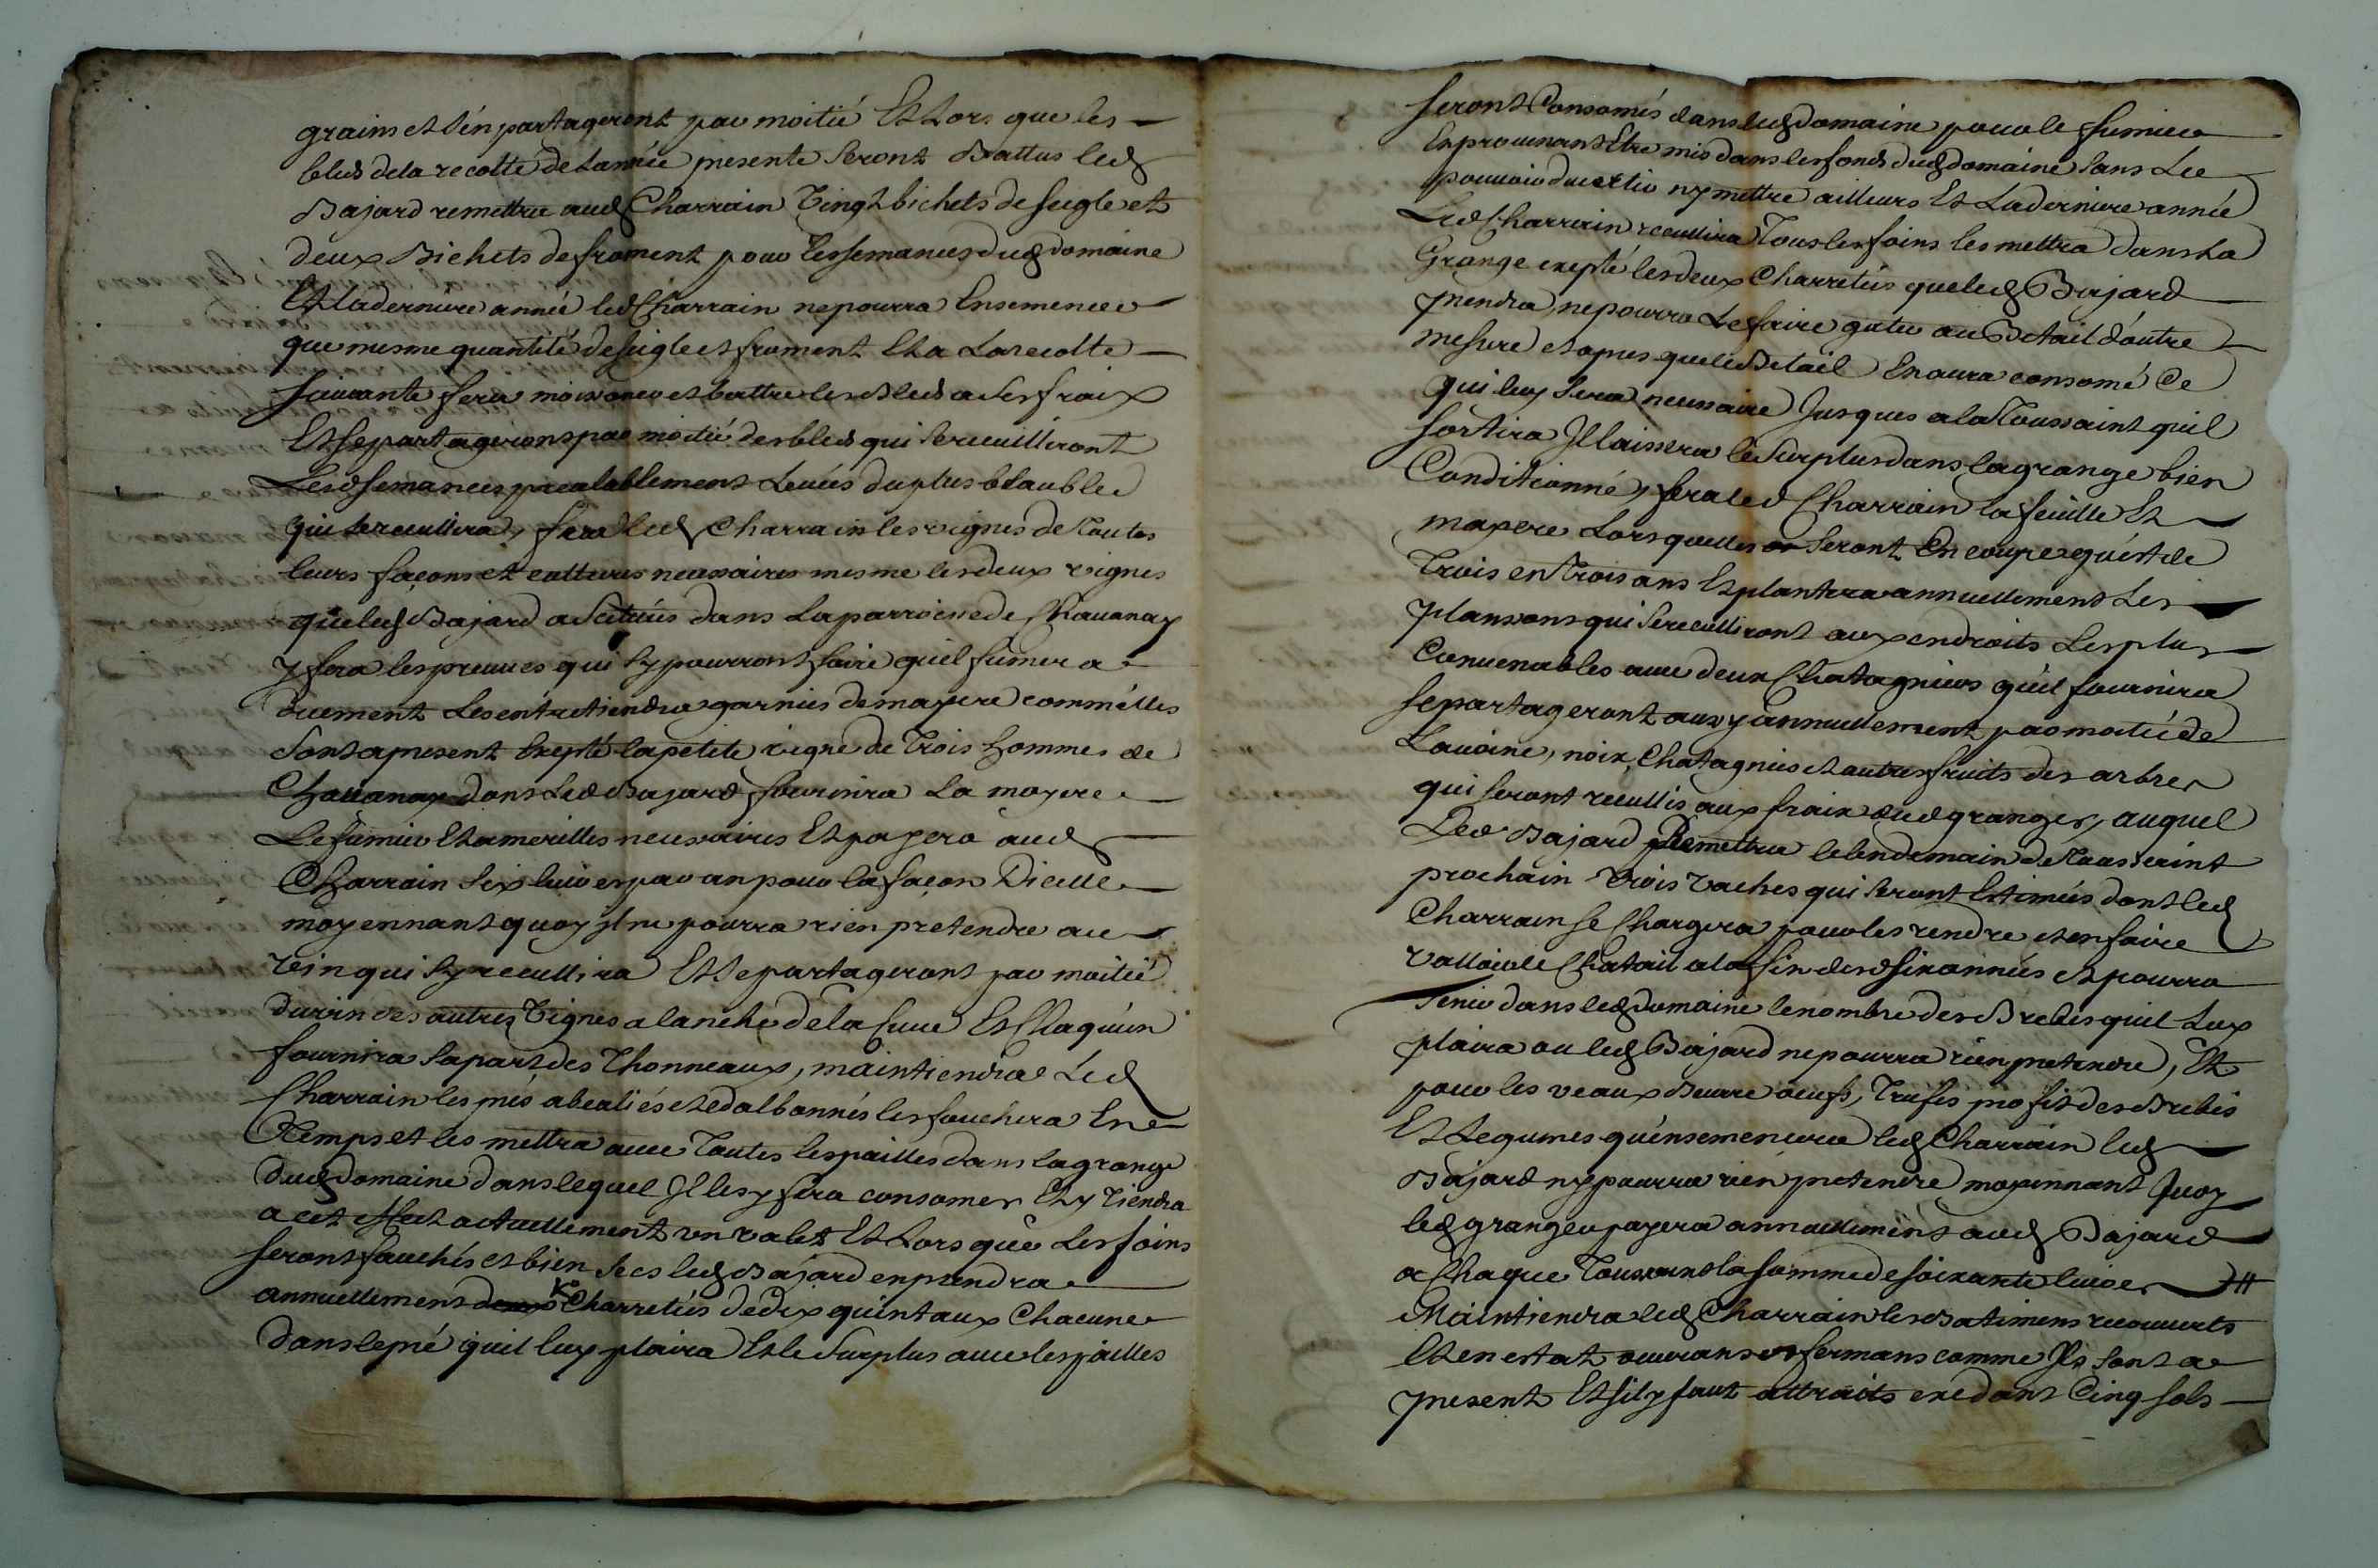 grains et s'en partageront par moitié Et Lors que les
bleds de la recolte de Lannée presente seront Battus led
Bajard remettra aud Charrain Vingt bichets de seigle et
deux Bichets de froment pour les semances dud domaine
Et la derniere année led Charrain ne pourra Ensemencer
que mesme quantité de seigle et froment Et a La recolte
suivante fera moissoner et battre les Bleds a ses fraix
Et se partageront par moitié des bleds qui se receuilliront
Lesd semances prealablement Levées du plus beau bled
qui se receullira, fera led Charrain les vignes de Toutes
leurs façons et cultures necessaires mesme les deux vignes
que led Bajard a Scituées dans La parroisse de Chavanay
y fera les preuves qui s'y pourront faire qu'il fumera
duement Les entretiendra garnies de mayere comm'elles
sont a present Exepté la petite vigne de Trois hommes de
Chavanay dont Led Bajard fournira La mayere
Le fumier Et amerilles necessaires Et payera aud
Charrain six livres par an pour la façon Dicelle
moyennant quoy il ne pourra rien pretendre au
vin qui s'y recullira Et se partageront par moitié
du vin des autres Vignes a lanche de la Cuve Et Chaqu'un
fournira sa part des Thonneaux, maintiendra Led
Charrain les prés abealiés et edalbonnés les fauchera En
Temps et les mettra avec Toutes les pailles dans la grange
dud domaine dans lequel Il les y fera consomer Et y Tiendra
a cet effect actuellement un valet Et Lors que Les foins
seront fauchés et bien secs led Bajard en prendra
annuellement Charretées de dix quintaux Chacune
dans le pré qu'il luy plaira Et le surplus avec les pailles
seront Consomés dans led domaine pour le fumier
En provenant Etre mis dans les fonds dud domaine sans Le
pouvoir divertir ny mettre ailleurs Et La derniere année
Led Charrain recullira Tous les foins les mettra dans La
Grange exepté les deux Charretées que led Bajard
prendra, ne pourra Le faire gater au Betail d'outre
mesure et apres que le Betail En aura consomé Ce
qui luy sera necessaire Jusques a la Toussaint quil
sortira Il laissera le surplus dans la grange bien
Conditionné, fera led Charrain la feuille Et
mayere Lors quelles seront En coupe qu'est de
Trois en Trois ans Et plantera annuellement Les
plansons qui se reculliront aux endroits Les plus
Convenables avec deux Chatagniers qu'il fournira
se partageront aussy annuellement par moitié de
Lavoine, noix, Chatagnies et autres fruits des arbres
qui seront recullis aux fraix dud granger, auquel
Led Bajard Remettra le lendemain de Toussaint
prochain Trois vaches qui seront Estimées dont led
Charrain se Chargera pour les rendre et en faire
valloir le Chatail a la fin desd six années et pourra
Tenir dans led domaine le nombre des Brebis quil Luy
plaira ou led Bajard ne pourra rien pretendre, Et
pour les veaux Beurre oeufs, Trufes profit des Brebis
Et Legumes qu'ensemencera led Charrain led
Bajard n'y pourra rien pretendre moyennant Quoy
led granger payera annuellement aud Bajard
a Chaque Toussaint la somme de soixante livres
Maintiendra led Charrain les Batimens recouverts
Et en estat ouvrans et fermans comme Ils sont a
present Et s'il y faut attraits exedant Cinq sols